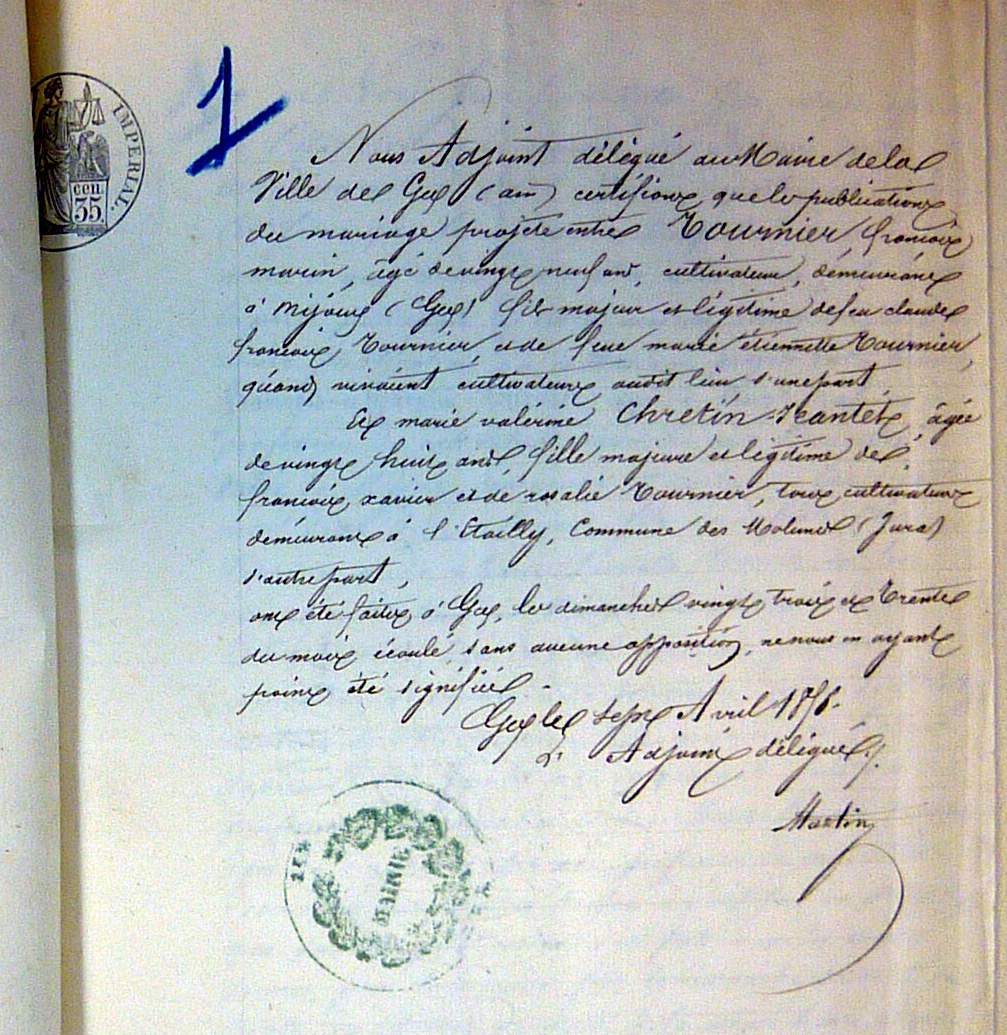 1
IMPÉRIAL.
cen
35.
Nous Adjoint délégué au Maire de la
Ville de Gex (ain) certifions que les publications
du mariage projeté entre Tournier, françois
marin, âgé de vingt neuf ans, cultivateur, démeurant
à Mijoux (Gex) fils majeur et légitime de feu claude
françois Tournier, et de feue marie étiennette Tournier,
quand vivaient cultivateurs audit lieu d'une part,
Et marie valérine Chretin-Jeantet, âgée
de vingt huit ans, fille majeure et légitime de
françois xavier et de rosalie Tournier, tous cultivateurs
démeurant à l'Etailly, Commune des Molunes (Jura)
d'autre part,
ont été faites à Gex, les dimanches vingt trois et trente
du mois écoulé, sans aucune opposition, ne nous en ayant
point été signifiée.
Gex le sept Avril
L' Adjoint délégué,
Martin
MAIRIE